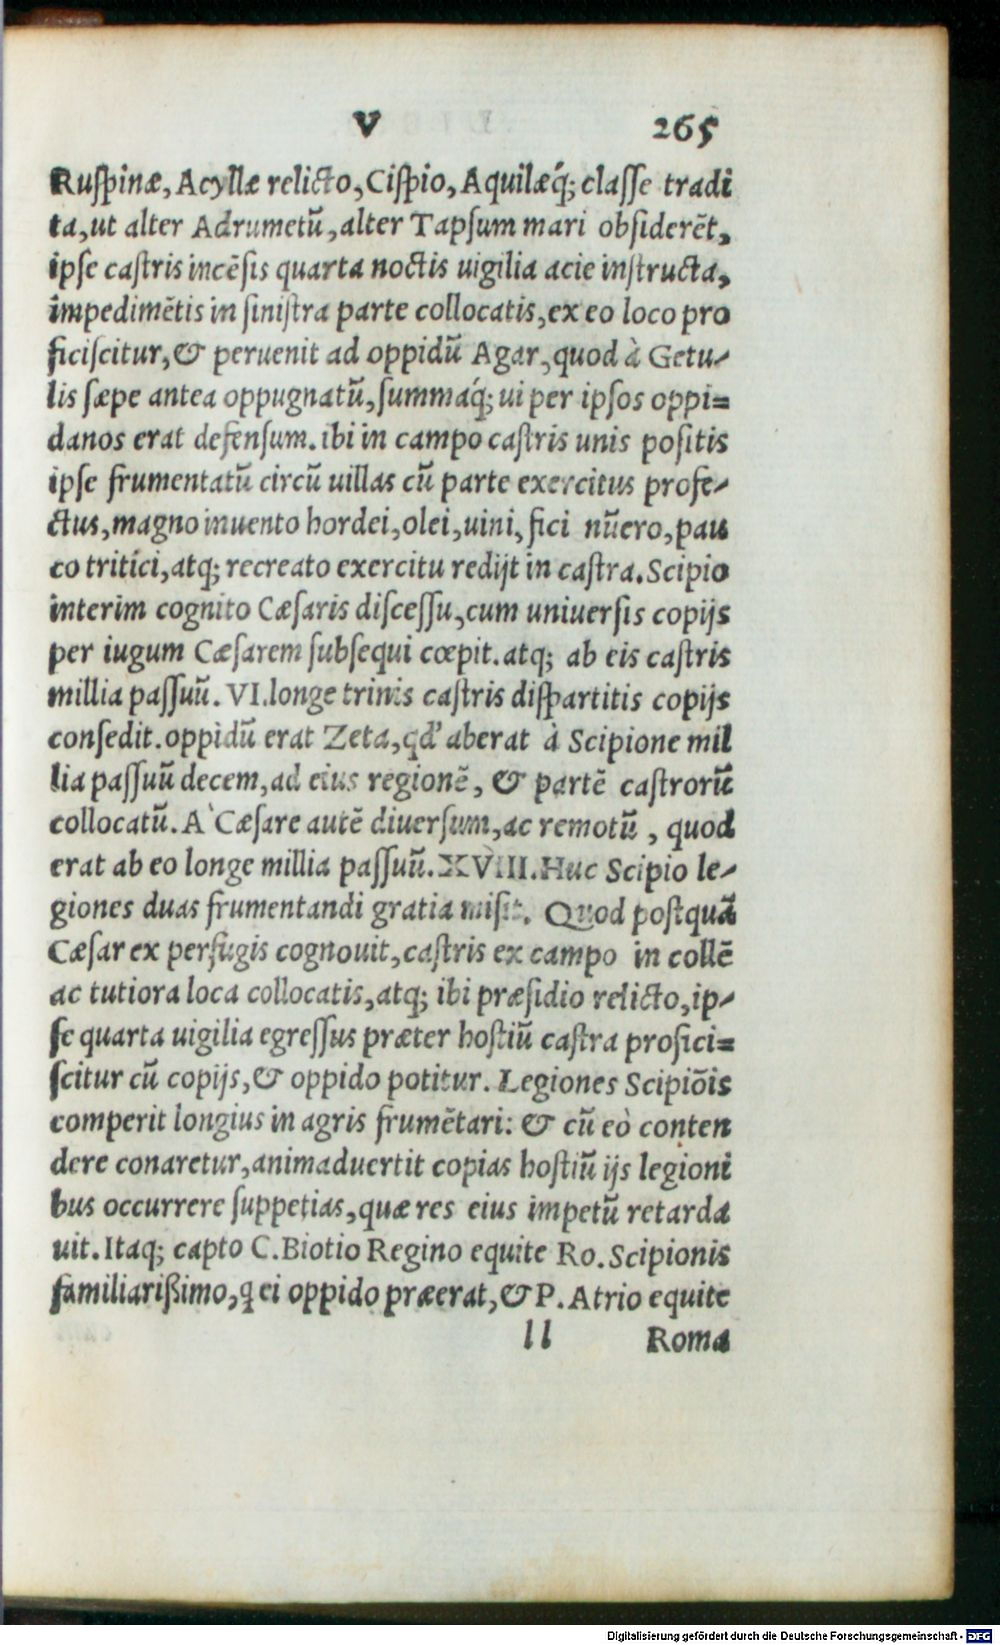 V 265
Ruſpinæ, Acyllæ relicto, Ciſpio, Aquilæq́; claſſe tradi
ta, ut alter Adrumetū, alter Tapſum mari obſiderēt,
ipſe caſtris incēſis quarta noctis uigilia acie inſtructa,
impedimētis in ſiniſtra parte collocatis, ex eo loco pro
ficiſcitur, & peruenit ad oppidū Agar, quod à Getu-
lis ſæpe antea oppugnatū, ſummaq́; ui per ipſos oppi=
danos erat defenſum. ibi in campo caſtris unis poſitis
ipſe frumentatū circū uillas cū parte exercitus profe-
ctus, magno inuento hordei, olei, uini, fici nūero, pau
co tritici, atq; recreato exercitu redijt in caſtra. Scipio
interim cognito Cæſaris diſceſſu, cum uniuerſis copijs
per iugum Cæſarem ſubſequi cœpit. atq; ab eis caſtris
millia paſſuū. VI. longe trinis caſtris diſpartitis copijs
conſedit. oppidū erat Zeta, qd' aberat à Scipione mil
lia paſſuū decem, ad eius regionē, & partē caſtrorū
collocatū. À Cæſare autē diuerſum, ac remotū, quod
erat ab eo longe millia paſſuū. XVIII. Huc Scipio le-
giones duas frumentandi gratia miſit. Quod poſtquā
Cæſar ex perfugis cognouit, caſtris ex campo in collē
ac tutiora loca collocatis, atq; ibi præſidio relicto, ip-
ſe quarta uigilia egreſſus præter hoſtiū caſtra profici=
ſcitur cū copijs, & oppido potitur. Legiones Scipiōis
comperit longius in agris frumētari: & cū eò conten
dere conaretur, animaduertit copias hoſtiū ijs legioni
bus occurrere ſuppetias, quæ res eius impetū retarda
uit. Itaq; capto C. Biotio Regino equite Ro. Scipionis
familiarißimo, q ei oppido præerat, & P. Atrio equite
ll Roma
Digitalisierung gefördert durch die Deutsche Forschungsgemeinschaft - DFG